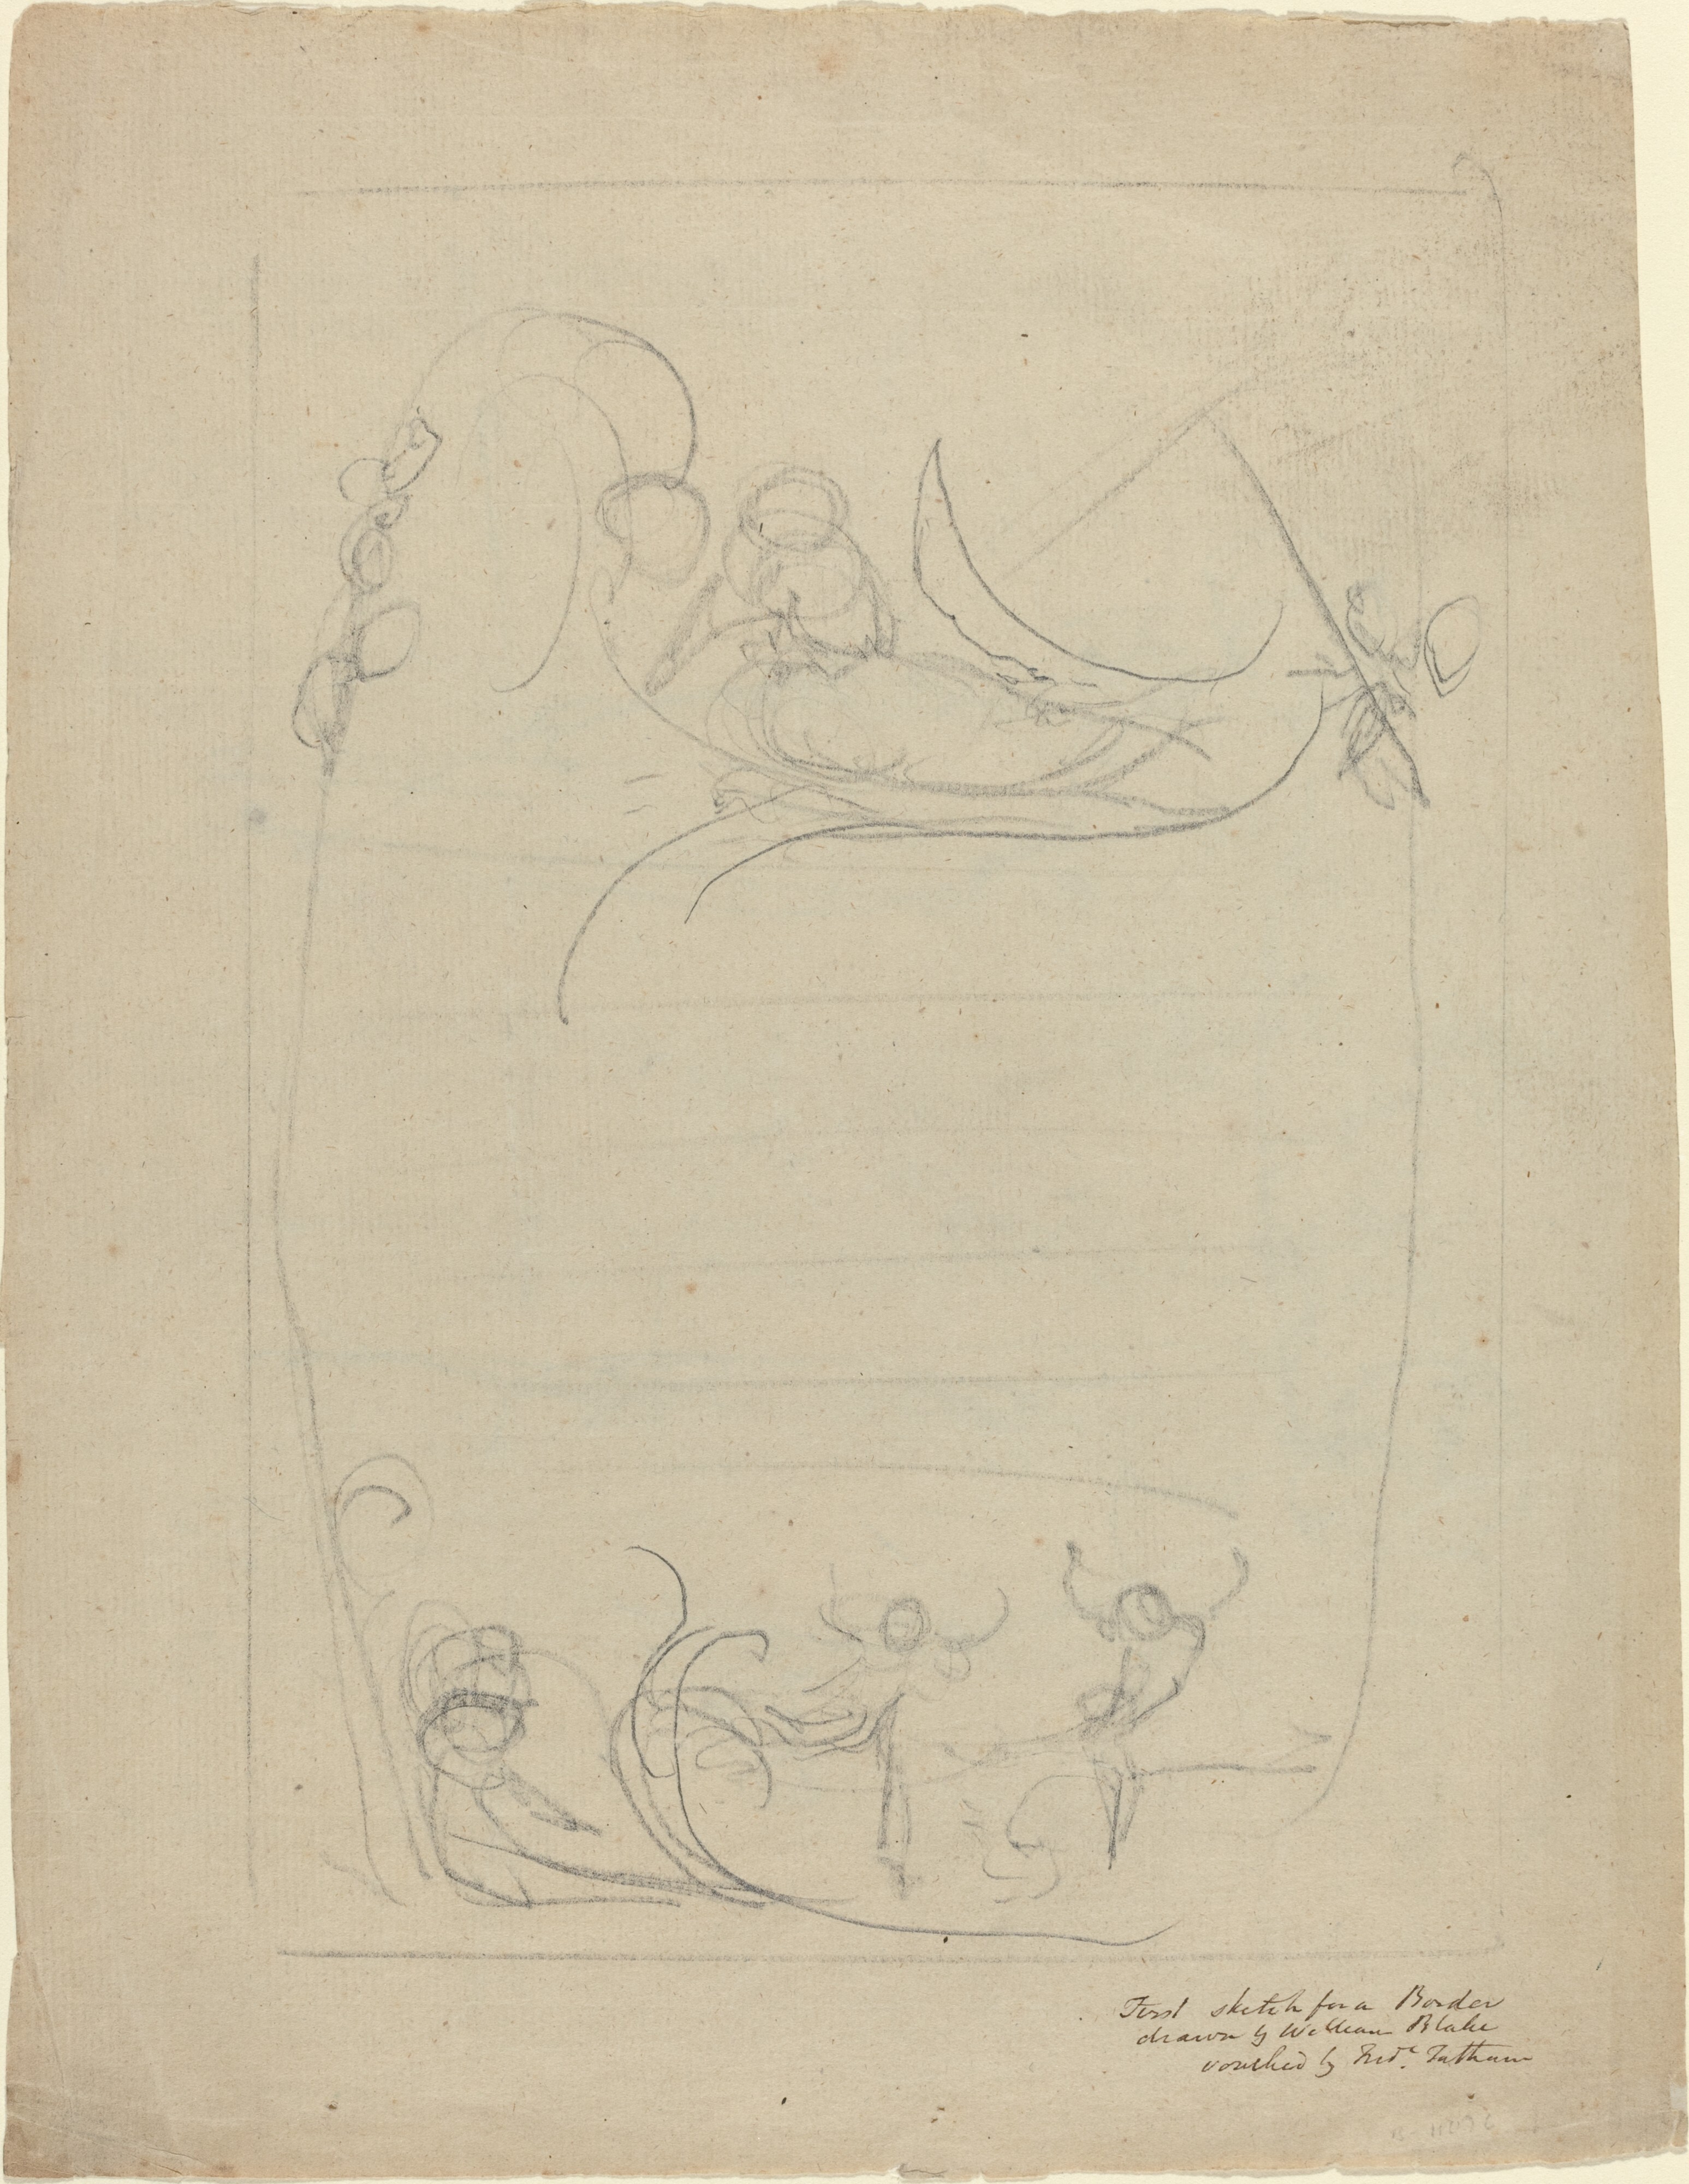 First sketch for a Border
drawn by William Blake
vouched by Fredᵏ. Tatham